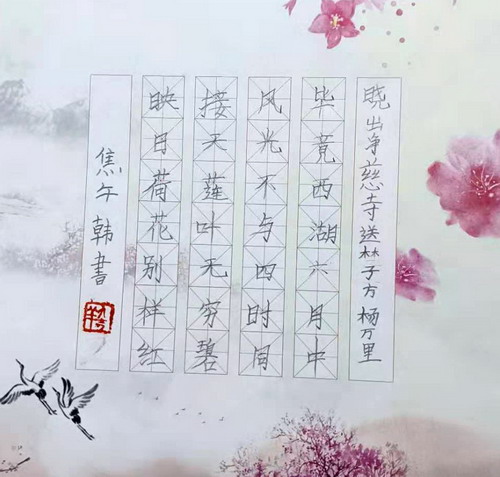 晓出净慈寺送林子方 杨万里
毕竟西湖六月中
风光不与四时同
接天莲叶无穷碧
映日荷花别样红
焦午韩書